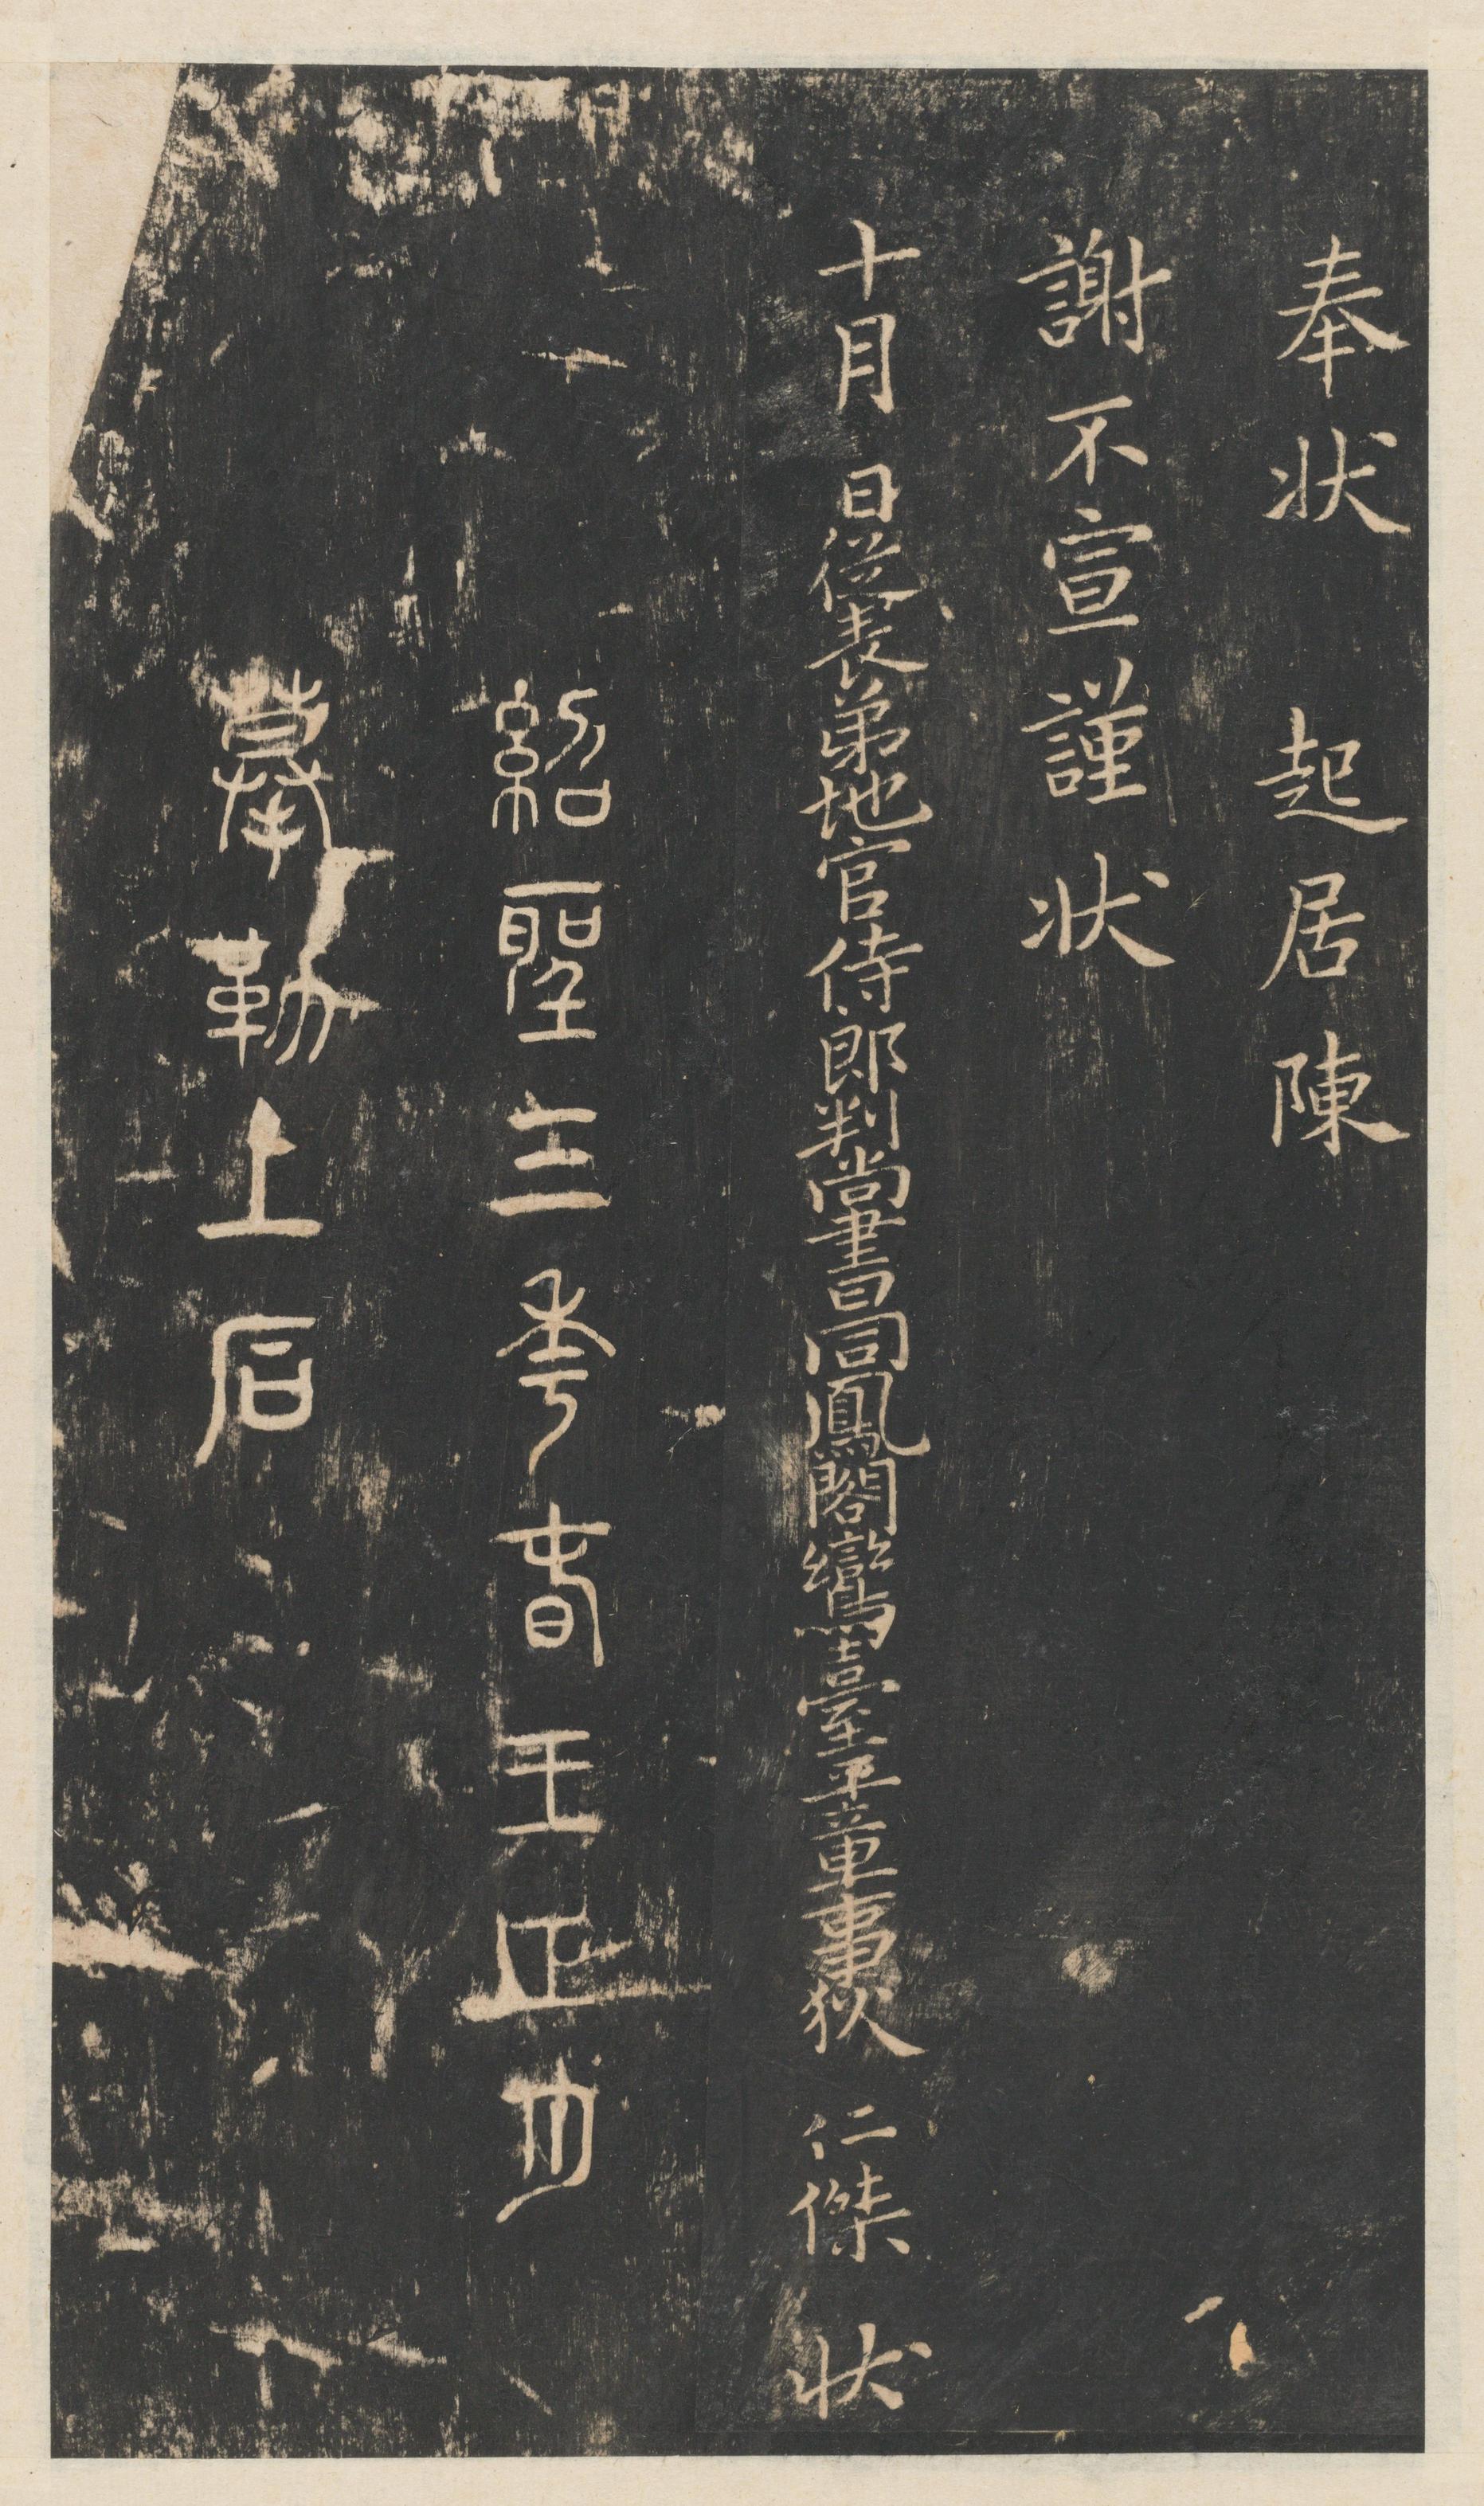 奉状 起居陳
謝不宣謹状
十月 日從表弟地官侍郎判尚書同鳳閣鸞臺平章事狄 仁傑 状
紹聖三年春王正月
摹勒上石